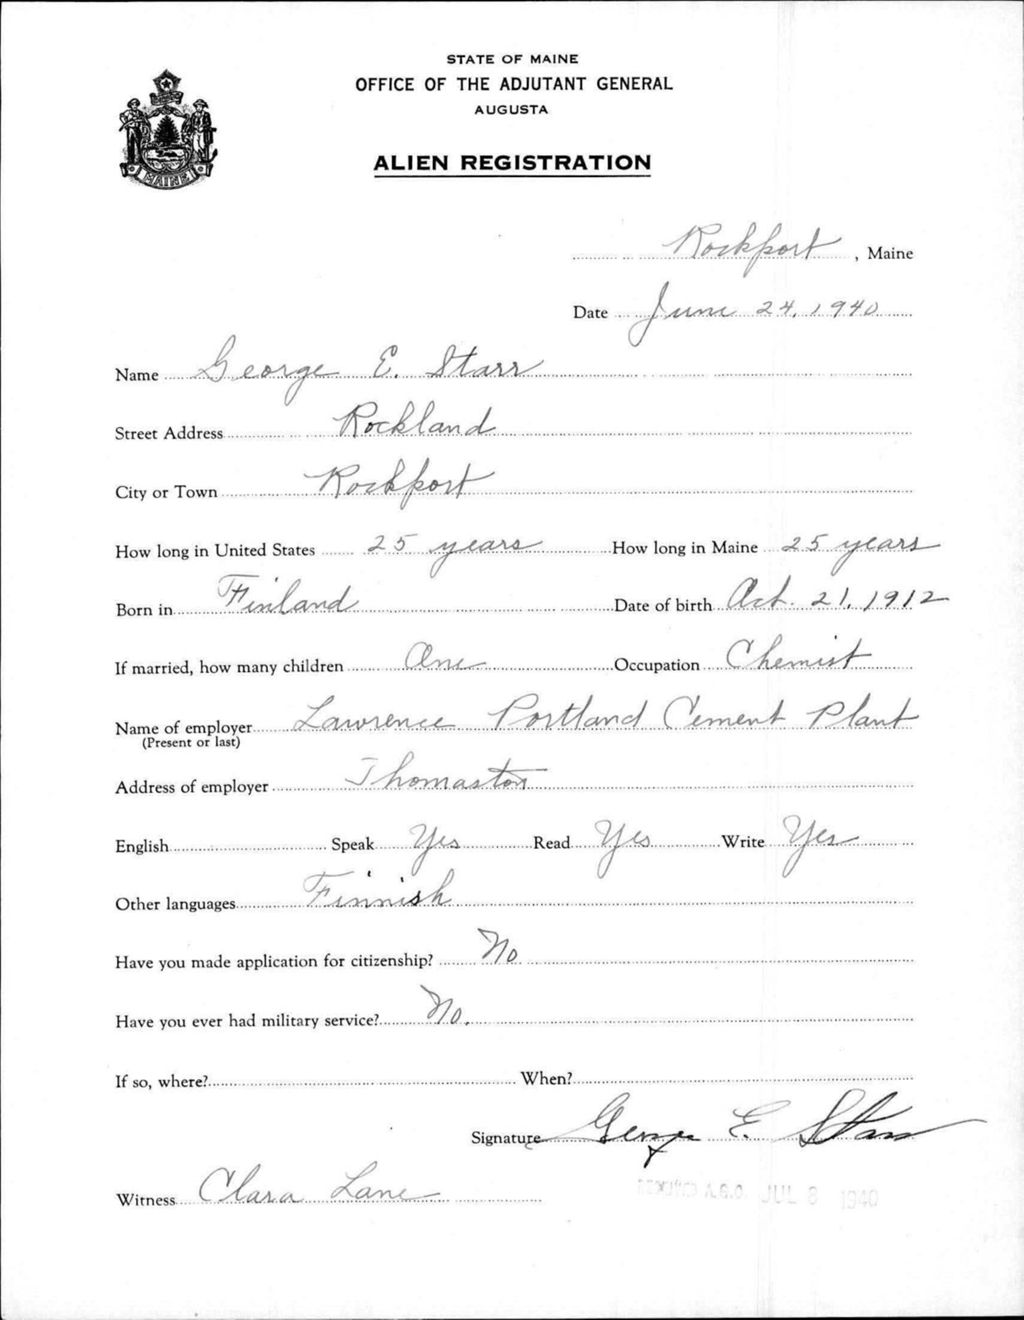 STATE OF MAINE
OFFICE OF THE ADJUTANT GENERAL
AUGUSTA
ALIEN REGISTRATION
MAINE
Rockport, Maine
Date June 24, 1940
Name George E. Starr
Street Address Rockland
City or Town Rockport
How long in United States 25 years How long in Maine 25 years
Born in Finland Date of birth Oct. 21, 1912
If married, how many children One Occupation Chemist
Name of employer Lawrence Portland Cement Plant
(Present or last)
Address of employer Thomaston
English Speak Yes Read Yes Write Yes
Other languages Finnish
Have you made application for citizenship? No
Have you ever had military service? No.
If so, where? When?
Signature George E. Starr
Witness Clara Lane
A.G.O. JUL 8 1940